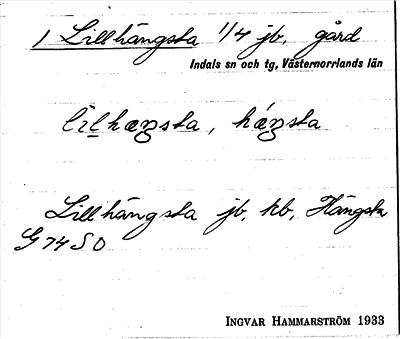 1 Lillhängsta 1/4 jb, gård
Indals sn och tg, Västernorrlands län
lìlhæŋsta, hǽŋsta
Lillhängsta jb, kb, Hängsta
G 74 SO
INGVAR HAMMARSTRÖM 1933